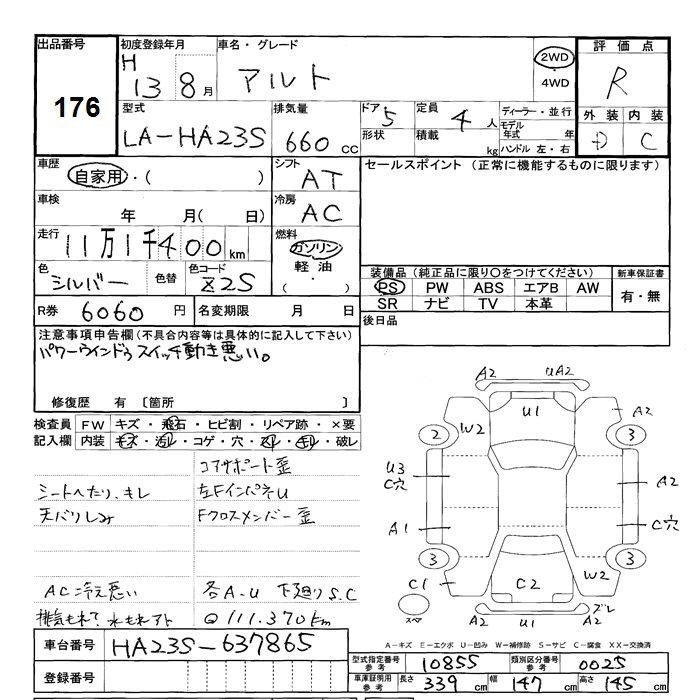 出品番号 176
初度登録年月 H 13 8月
車名・グレード アルト
2WD・4WD
評価点 R
外装 D 内装 C
型式 LA-HA23S
排気量 660 cc
ドア 5 形状
定員 4 人 積載 kg
ディーラー・並行
モデル年式 年
ハンドル 左・右
車歴 自家用・( )
シフト AT
セールスポイント (正常に機能するものに限ります)
車検 年 月( 日)
冷房 AC
走行 11万1千400 km
燃料 ガソリン 軽油 ( ・ )
色 シルバー 色替 色コード Z2S
装備品 (純正品に限り○をつけてください)
PS PW ABS エアB AW
SR ナビ TV 本革
新車保証書 有・無
R券 6060 円 名変期限 月 日
後日品
注意事項申告欄 (不具合内容等は具体的に記入して下さい)
パワーウインドウ スイッチ動き悪い。
修復歴 有 〔箇所 〕
検査員記入欄
FW キズ・飛石・ヒビ割・リペア跡・×要
内装 キズ・汚レ・コゲ・穴・スレ・キレ・破レ
コアサポート歪
シートへたり、キレ 左FインパネU
天バリしみ Fクロスメンバー歪
AC冷え悪い 各A.U 下廻りS.C
排気もれて 水もれアト @111.370km
A2 UA2
U1
A2
2 W2 3
U3
C穴
A1 C穴
3 3
C1 C2 W2
スペア
A2 U1 A2 ズレ
A-キズ E-エクボ U-凹み W-補修跡 S-サビ C-腐食 XX-交換済
車台番号 HA23S-637865
登録番号
型式指定番号 参考 10855 類別区分番号 参考 0025
車庫証明用 参考 長さ 339 cm 幅 147 cm 高さ 145 cm